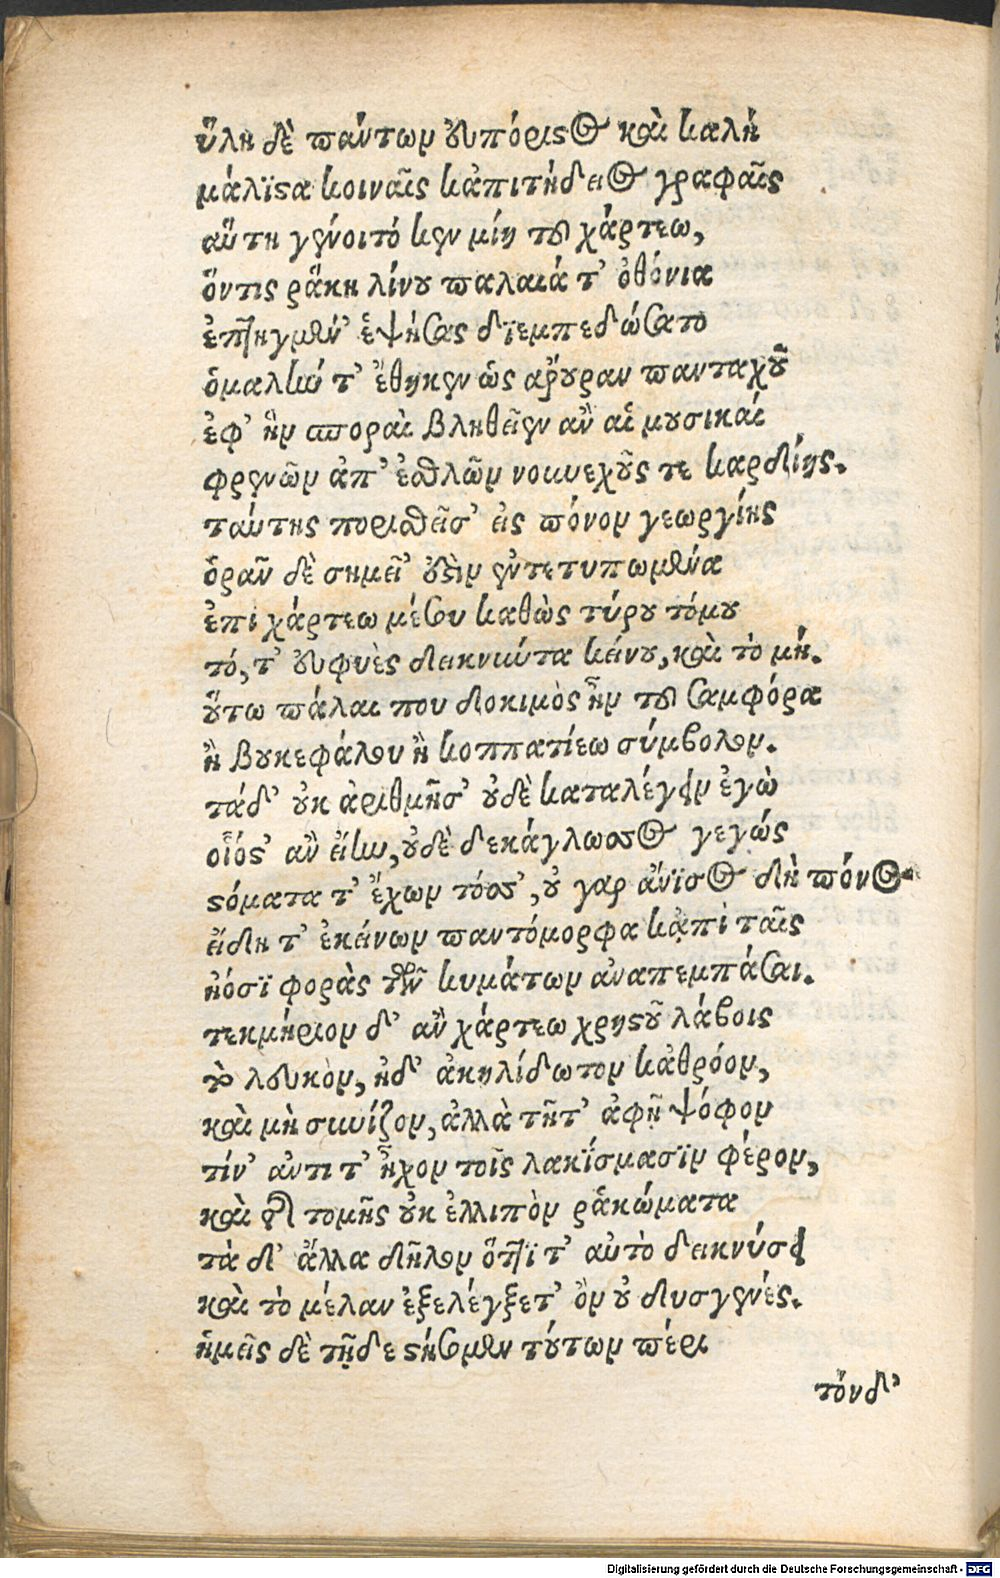 ὕλη δὲ πάντων εὐπόριστος καὶ καλὴ
μάλιστα κοιναῖς κἀπιτήδειος γραφαῖς
αὕτη γένοιτό κεν μίη τοῦ χάρτεω,
ὅντις ῥάκη λίνου παλαιά τ' ὀθόνια
ἑψήσας διεμπεδώσατο
ὁμαλὴν τ' ἔθηκεν ὡς ἄρουραν πανταχοῦ
ἐφ' ἣν σποραὶ βληθεῖεν ἂν αἱ μουσικαὶ
φρενῶν ἀπ' ἐσθλῶν νουνεχοῦς τε καρδίης.
ταύτης πορισθεῖσ' εἰς πόνον γεωργίης
ὁρᾶν δὲ σημεῖ' ἐντετυπωμένα
ἐπὶ χάρτεω μέσου καθὼς τύρου τόμου
τό, τ' εὐφυὲς δεικνύντα κείνου, καὶ τὸ μή.
οὕτω πάλαι που δόκιμος ἦν τοῦ σαμφόρα
ἢ βουκεφάλου ἢ κοππατίεω σύμβολον.
τάδ' οὐκ ἀριθμῆσ' οὐδὲ καταλέγειν ἐγὼ
οἷός τ' ἂν εἴην, οὐδὲ δεκάγλωσσος γεγώς
στόματα τ' ἔχων τόσσ', οὐ γαρ ἄνϊσος δὴ πόνος
εἴδη τ' ἐκείνων παντόμορφα κἀπὶ ταῖς
ἠόσϊ φορὰς τῶν κυμάτων ἀναπεμπάσαι.
τεκμήριον δ' ἂν χάρτεω χρηστοῦ λάβοις
τὸ λευκὸν, ἠδ' ἀκηλίδωτον κἀθρόον,
καὶ μὴ σκνίζον, ἀλλὰ τῆτ' ἀφῇ ψόφον
τίν' ἀντι τ' ἦχον τοῖς λακΐσμασϊν φέρον,
καὶ περὶ τομῆς οὐκ ἐλλιπὸν ῥακώματα
τὰ δ' ἄλλα δῆλον ὅττϊ τ' αὐτὸ δεικνύσει
καὶ τὸ μέλαν ἐξελέγξετ' ὂν οὐ δυσγενές.
ἡμεῖς δὲ τῇδε στήσομεν τούτων πέρι
τόνδ'